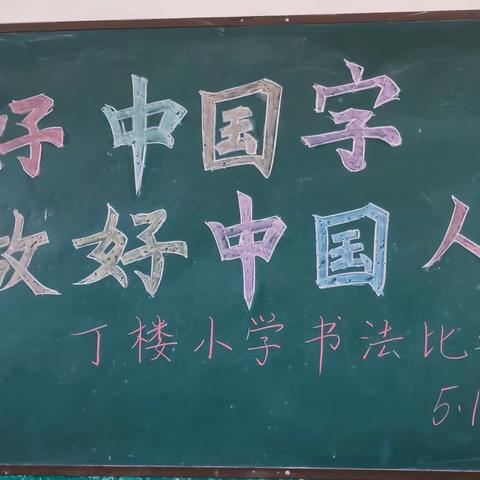 好中国字
做好中国人
丁楼小学书法比
5.1